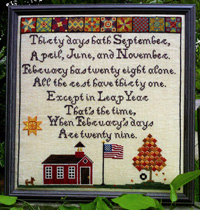 Thirty days hath September,
April, June, and November.
February has twenty eight alone.
All the rest have thirty one.
Except in Leap Year
That's the time,
When February's days
Are twenty nine.